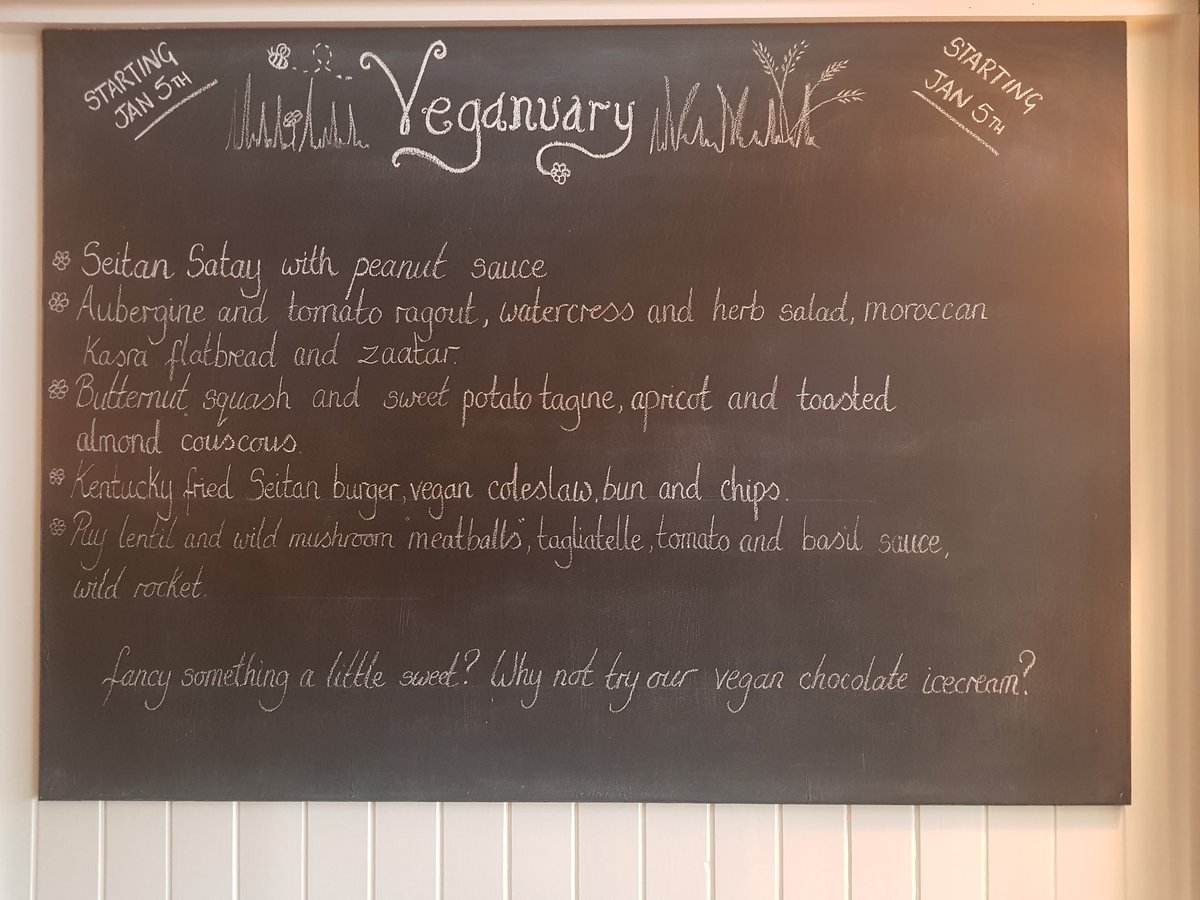 STARTING
JAN 5TH
Veganuary
STARTING
JAN 5TH
Seitan Satay with peanut sauce
Aubergine and tomato ragout, watercress and herb salad, moroccan
Kasra flatbread and zaatar.
Butternut squash and sweet potato tagine, apricot and toasted
almond couscous.
Kentucky fried Seitan burger, vegan coleslaw, bun and chips.
Puy lentil and wild mushroom "meatballs", tagliatelle, tomato and basil sauce,
wild rocket.
fancy something a little sweet? Why not try our vegan chocolate icecream?